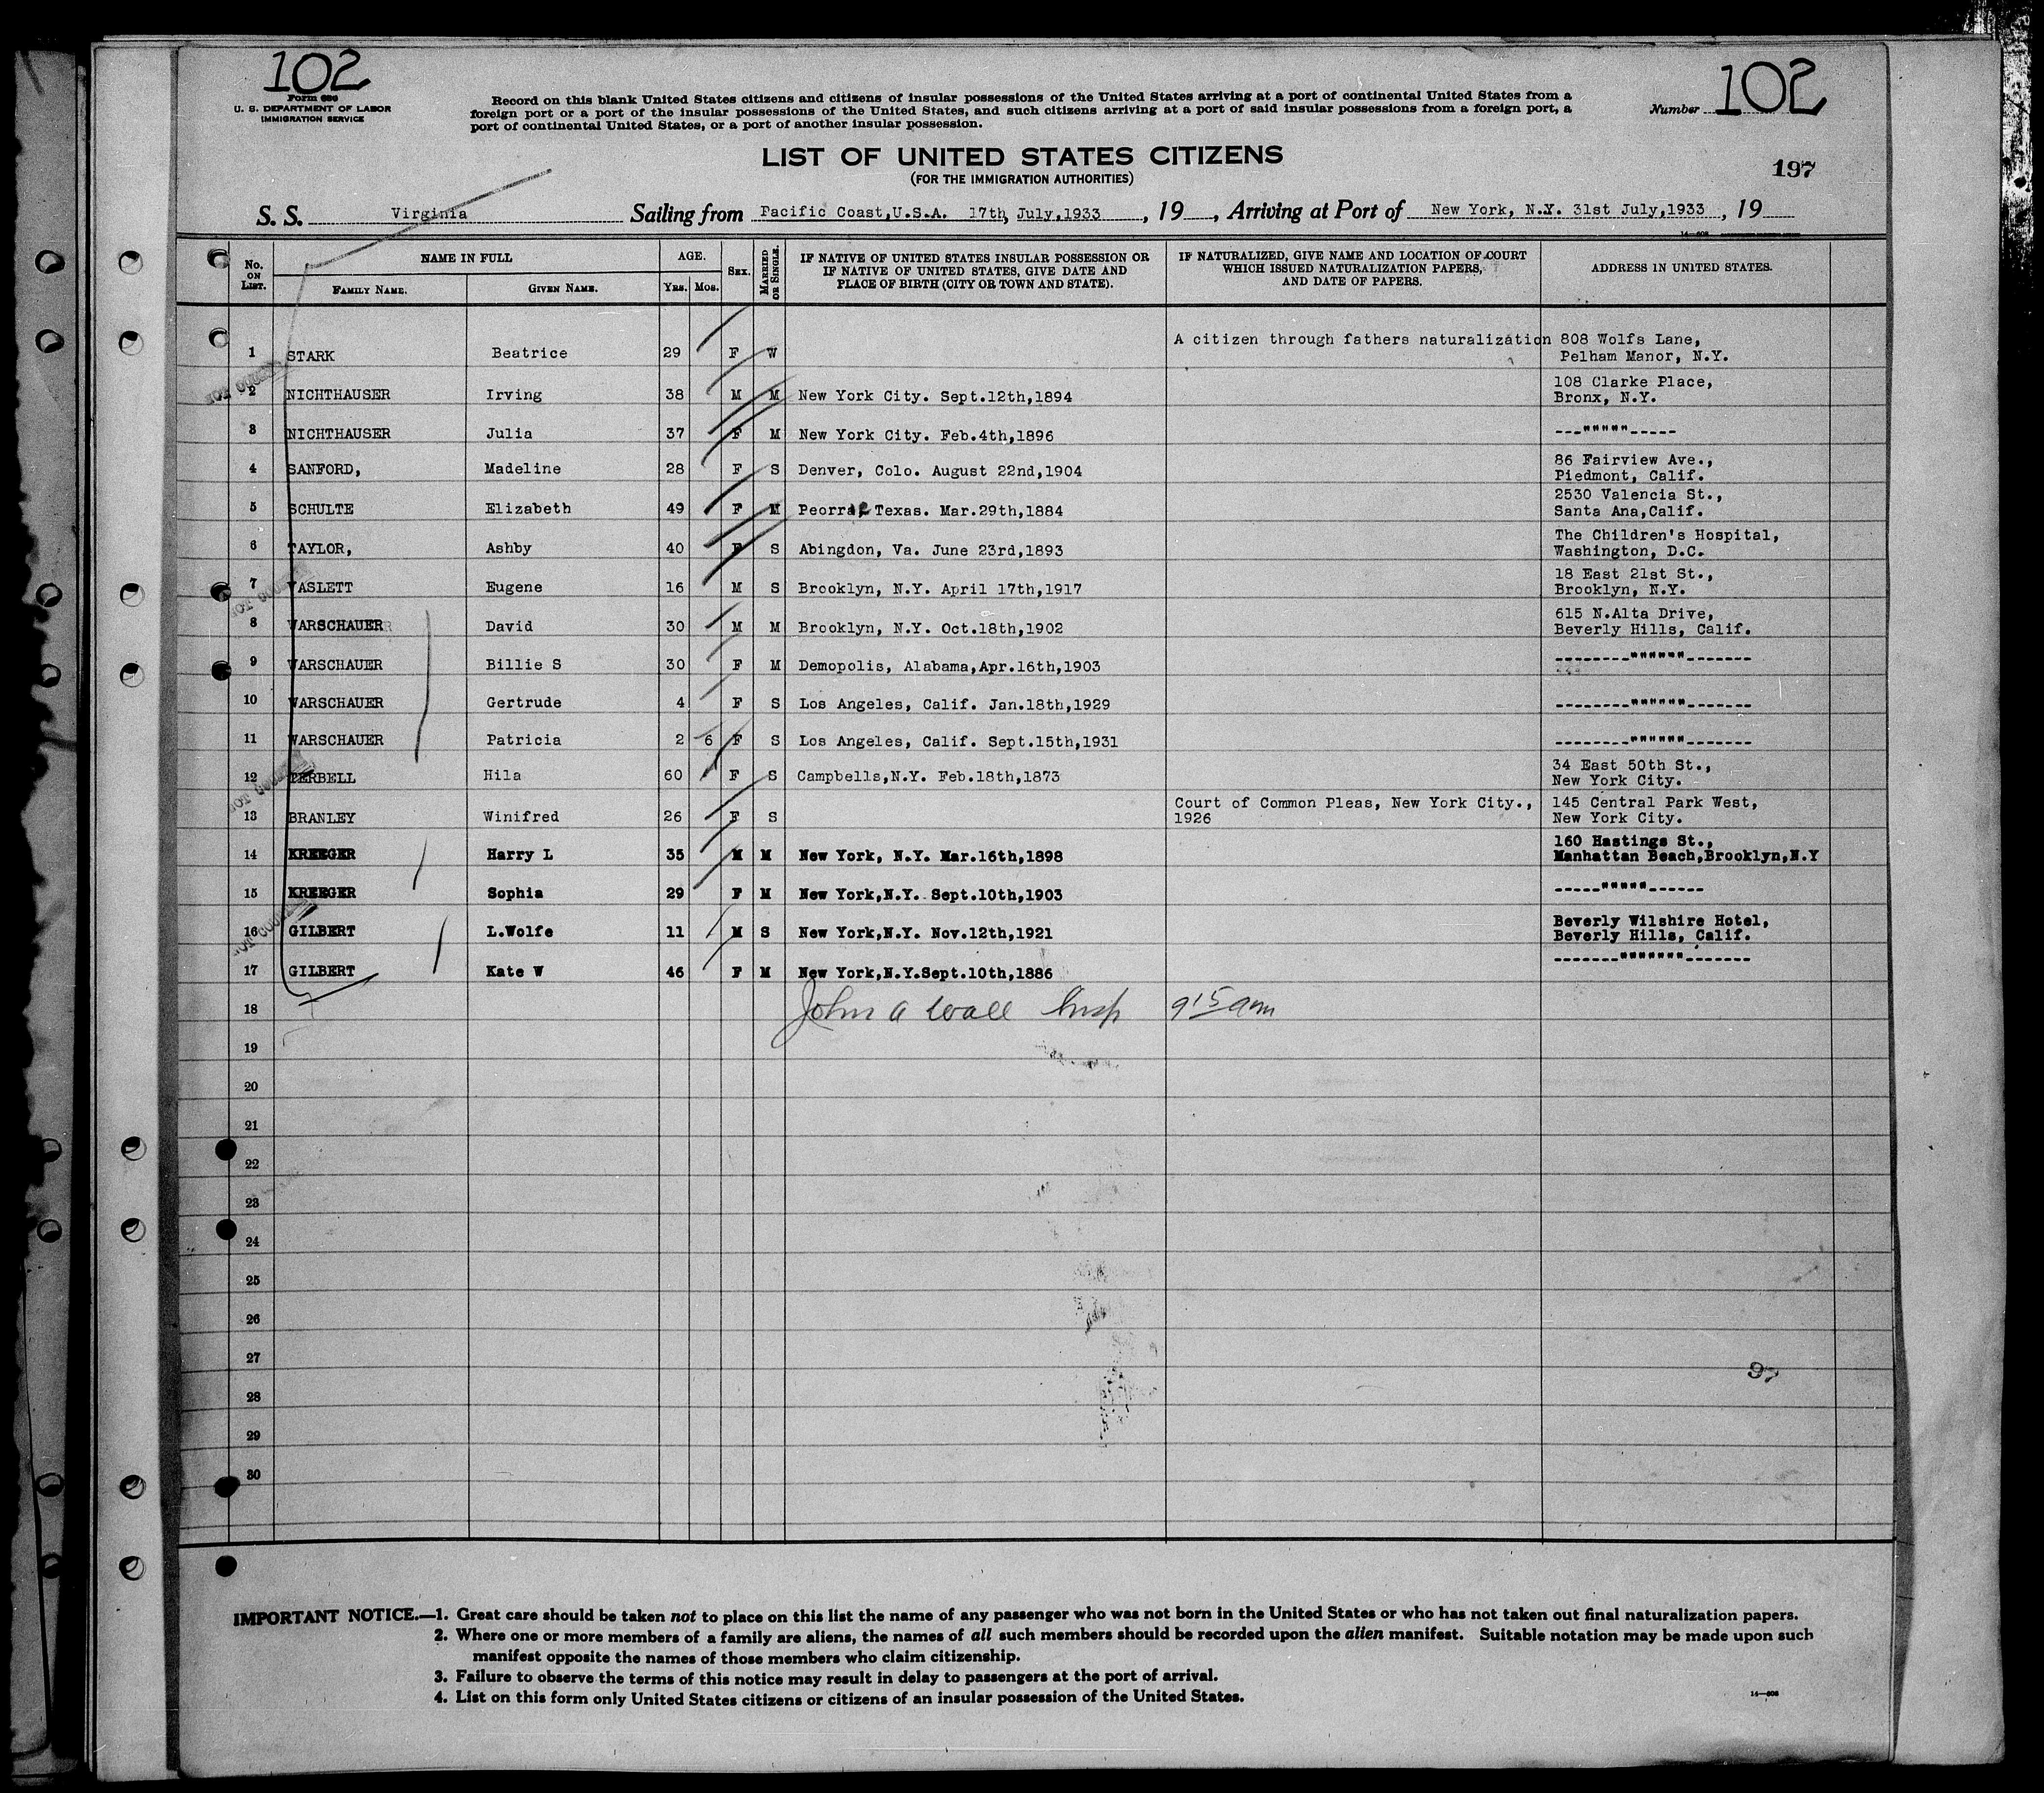 102
Form 686
U. S. DEPARTMENT OF LABOR
IMMIGRATION SERVICE
Record on this blank United States citizens and citizens of insular possessions of the United States arriving at a port of continental United States from a
foreign port or a port of the insular possessions of the United States, and such citizens arriving at a port of said insular possessions from a foreign port, a
port of continental United States, or a port of another insular possession.
Number 102
LIST OF UNITED STATES CITIZENS
(FOR THE IMMIGRATION AUTHORITIES)
197
S. S. Virginia Sailing from Pacific Coast,U.S.A. 17th, July,1933, 19 , Arriving at Port of New York, N.Y. 31st July,1933, 19
14—608
No. ON LIST. NAME IN FULL FAMILY NAME. GIVEN NAME. AGE. YRS. MOS. SEX. MARRIED OR SINGLE. IF NATIVE OF UNITED STATES INSULAR POSSESSION OR IF NATIVE OF UNITED STATES, GIVE DATE AND PLACE OF BIRTH (CITY OR TOWN AND STATE). IF NATURALIZED, GIVE NAME AND LOCATION OF COURT WHICH ISSUED NATURALIZATION PAPERS, AND DATE OF PAPERS. ADDRESS IN UNITED STATES.
1 STARK Beatrice 29 F W A citizen through fathers naturalization 808 Wolfs Lane,
Pelham Manor, N.Y.
2 NICHTHAUSER Irving 38 M M New York City. Sept.12th,1894 108 Clarke Place,
Bronx, N.Y.
3 NICHTHAUSER Julia 37 F M New York City. Feb.4th,1896 ---"""""-----
4 SANFORD, Madeline 28 F S Denver, Colo. August 22nd,1904 86 Fairview Ave.,
Piedmont, Calif.
5 SCHULTE Elizabeth 49 F M Texas. Mar.29th,1884 2530 Valencia St.,
Santa Ana,Calif.
6 TAYLOR, Ashby 40 F S Abingdon, Va. June 23rd,1893 The Children's Hospital,
Washington, D.C.
7 VASLETT Eugene 16 M S Brooklyn, N.Y. April 17th,1917 18 East 21st St.,
Brooklyn, N.Y.
8 WARSCHAUER David 30 M M Brooklyn, N.Y. Oct.18th,1902 615 N.Alta Drive,
Beverly Hills, Calif.
9 WARSCHAUER Billie S 30 F M Demopolis, Alabama,Apr.16th,1903 --------""""""-------
10 WARSCHAUER Gertrude 4 F S Los Angeles, Calif. Jan.18th,1929 --------""""""-------
11 WARSCHAUER Patricia 2 6 F S Los Angeles, Calif. Sept.15th,1931 --------""""""-------
12 TERBELL Hila 60 F S Campbells,N.Y. Feb.18th,1873 34 East 50th St.,
New York City.
13 BRANLEY Winifred 26 F S Court of Common Pleas, New York City., 1926 145 Central Park West,
New York City.
14 KREEGER Harry L 35 M M New York, N.Y. Mar.16th,1898 160 Hastings St.,
Manhattan Beach,Brooklyn,N.Y
15 KREEGER Sophia 29 F M New York,N.Y. Sept.10th,1903 -----"""""------
16 GILBERT L.Wolfe 11 M S New York,N.Y. Nov.12th,1921 Beverly Wilshire Hotel,
Beverly Hills, Calif.
17 GILBERT Kate W 46 F M New York,N.Y.Sept.10th,1886 -------"""""""-------
18 John A Wall Insp 9 15 am
19
20
21
22
23
24
25
26
27
97
28
29
30
IMPORTANT NOTICE.—1. Great care should be taken not to place on this list the name of any passenger who was not born in the United States or who has not taken out final naturalization papers.
2. Where one or more members of a family are aliens, the names of all such members should be recorded upon the alien manifest. Suitable notation may be made upon such
manifest opposite the names of those members who claim citizenship.
3. Failure to observe the terms of this notice may result in delay to passengers at the port of arrival.
4. List on this form only United States citizens or citizens of an insular possession of the United States.
14—608